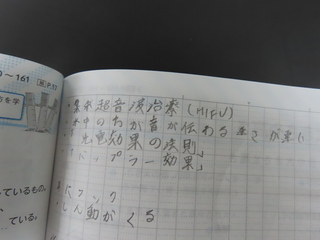 0～161
P.72
方を学
・集束超音波治療(HIFU)
・水中の方が音が伝わる速さが速い
効果の法則」
「ドップラー効果」
・しん動がくる
ているもの。
ている。